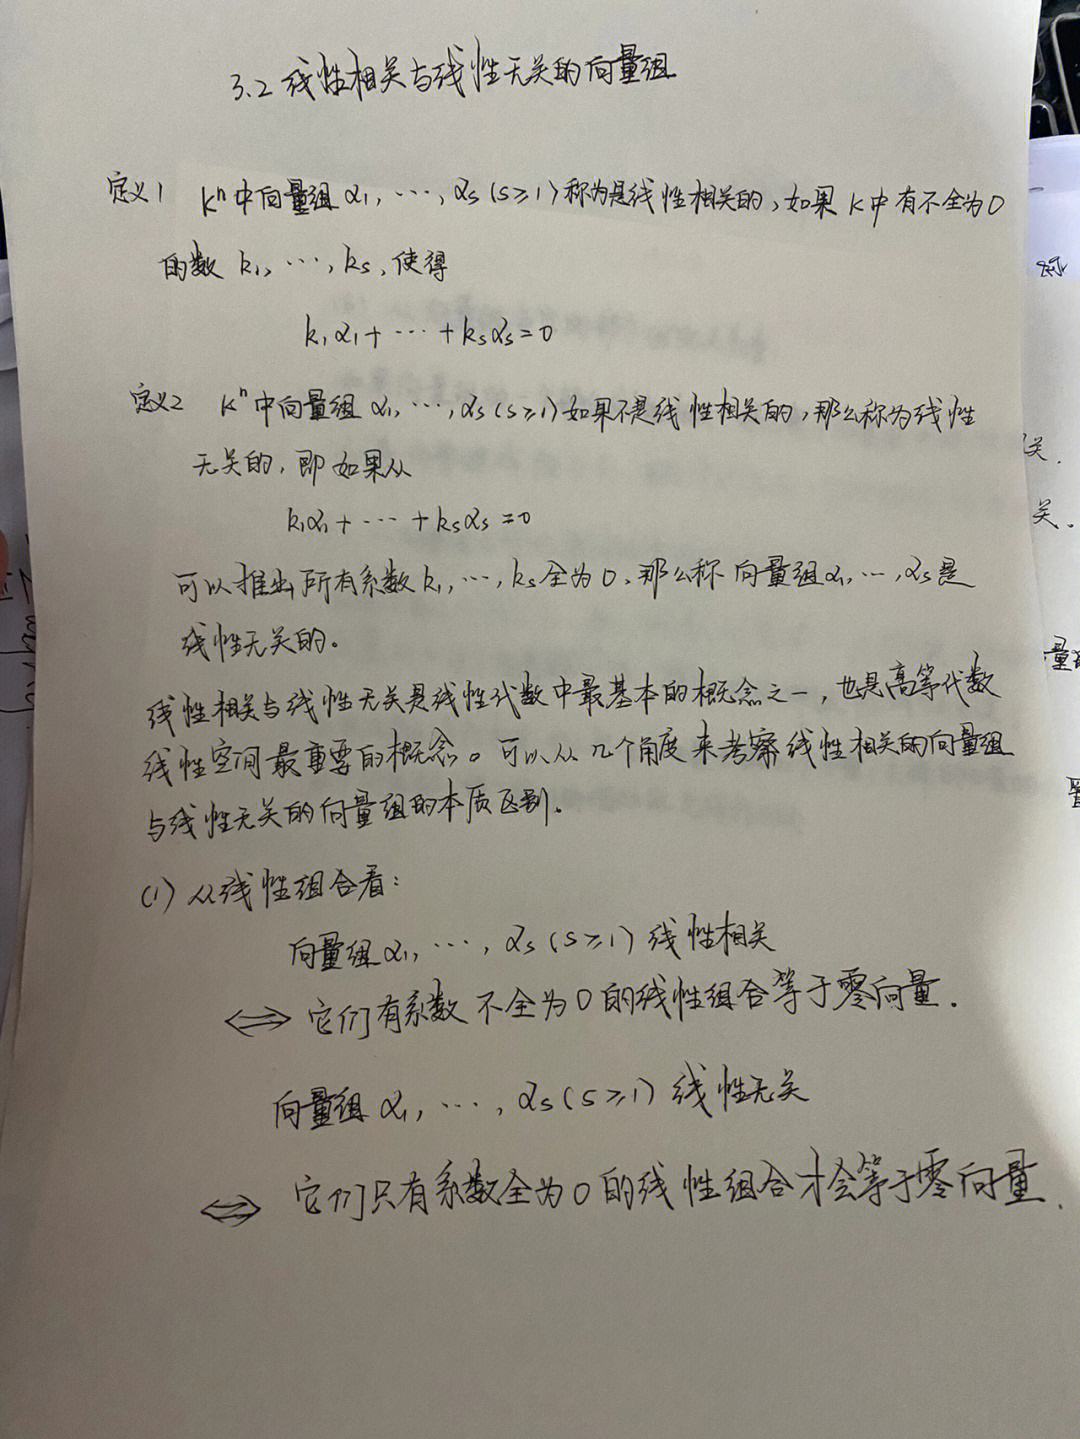 3.2 线性相关与线性无关的向量组
定义1 Kⁿ中向量组 α₁, …, αₛ (s≥1) 称为是线性相关的,如果 K中有不全为0
的数 k₁, …, kₛ, 使得
k₁α₁+ … +kₛαₛ=0
定义2 Kⁿ中向量组 α₁, …, αₛ (s≥1) 如果不是线性相关的,那么称为线性
无关的, 即如果从
k₁α₁+ … +kₛαₛ=0
可以推出所有系数k₁, …, kₛ全为0, 那么称向量组α₁, …, αₛ是
线性无关的。
线性相关与线性无关是线性代数中最基本的概念之一, 也是高等代数
线性空间最重要的概念。可以从几个角度来考察线性相关的向量组
与线性无关的向量组的本质区别.
(1) 从线性组合看:
向量组α₁, …, αₛ (s≥1) 线性相关
⟺ 它们有系数不全为0的线性组合等于零向量.
向量组 α₁, …, αₛ (s≥1) 线性无关
⟺ 它们只有系数全为0的线性组合才会等于零向量.
关.
关.
量